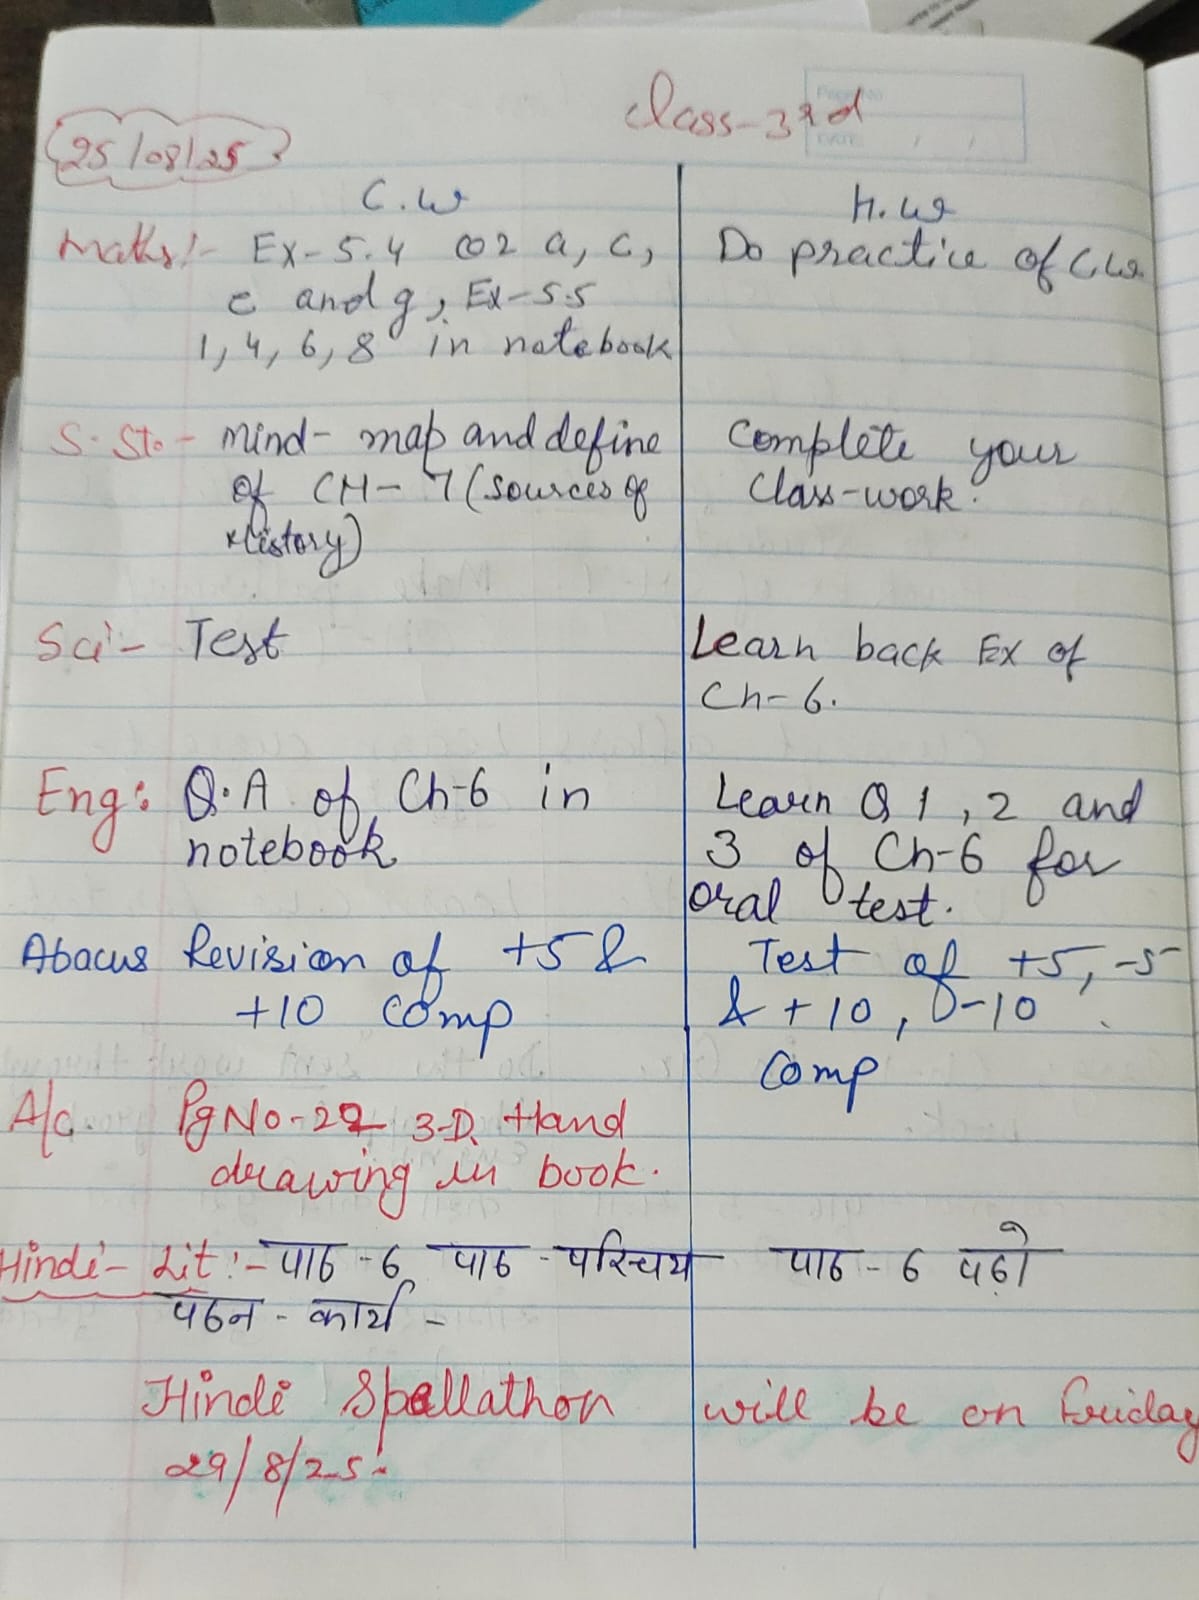 Class-3rd
25/08/25
C.W
H.W
Maths:- Ex-5.4 Q2 a, c,
e and g, Ex-5.5
1, 4, 6, 8 in notebook
Do practice of C.W.
S.St. - mind-map and define
of CH-7 (Sources of
History)
Complete your
Class-work.
Sci - Test
Learn back Ex of
Ch-6.
Eng: Q.A of Ch-6 in
notebook
Learn Q 1, 2 and
3 of Ch-6 for
oral test.
Abacus Revision of +5 &
+10 comp
Test of +5, -5
& +10, -10
Comp
A/c. Pg No-22 3-D Hand
drawing in book.
Hindi- Lit:- पाठ-6 पाठ-परिचय
पठन-कार्य -
पाठ-6 पढ़ो
Hindi Spellathon will be on Friday
29/8/25.